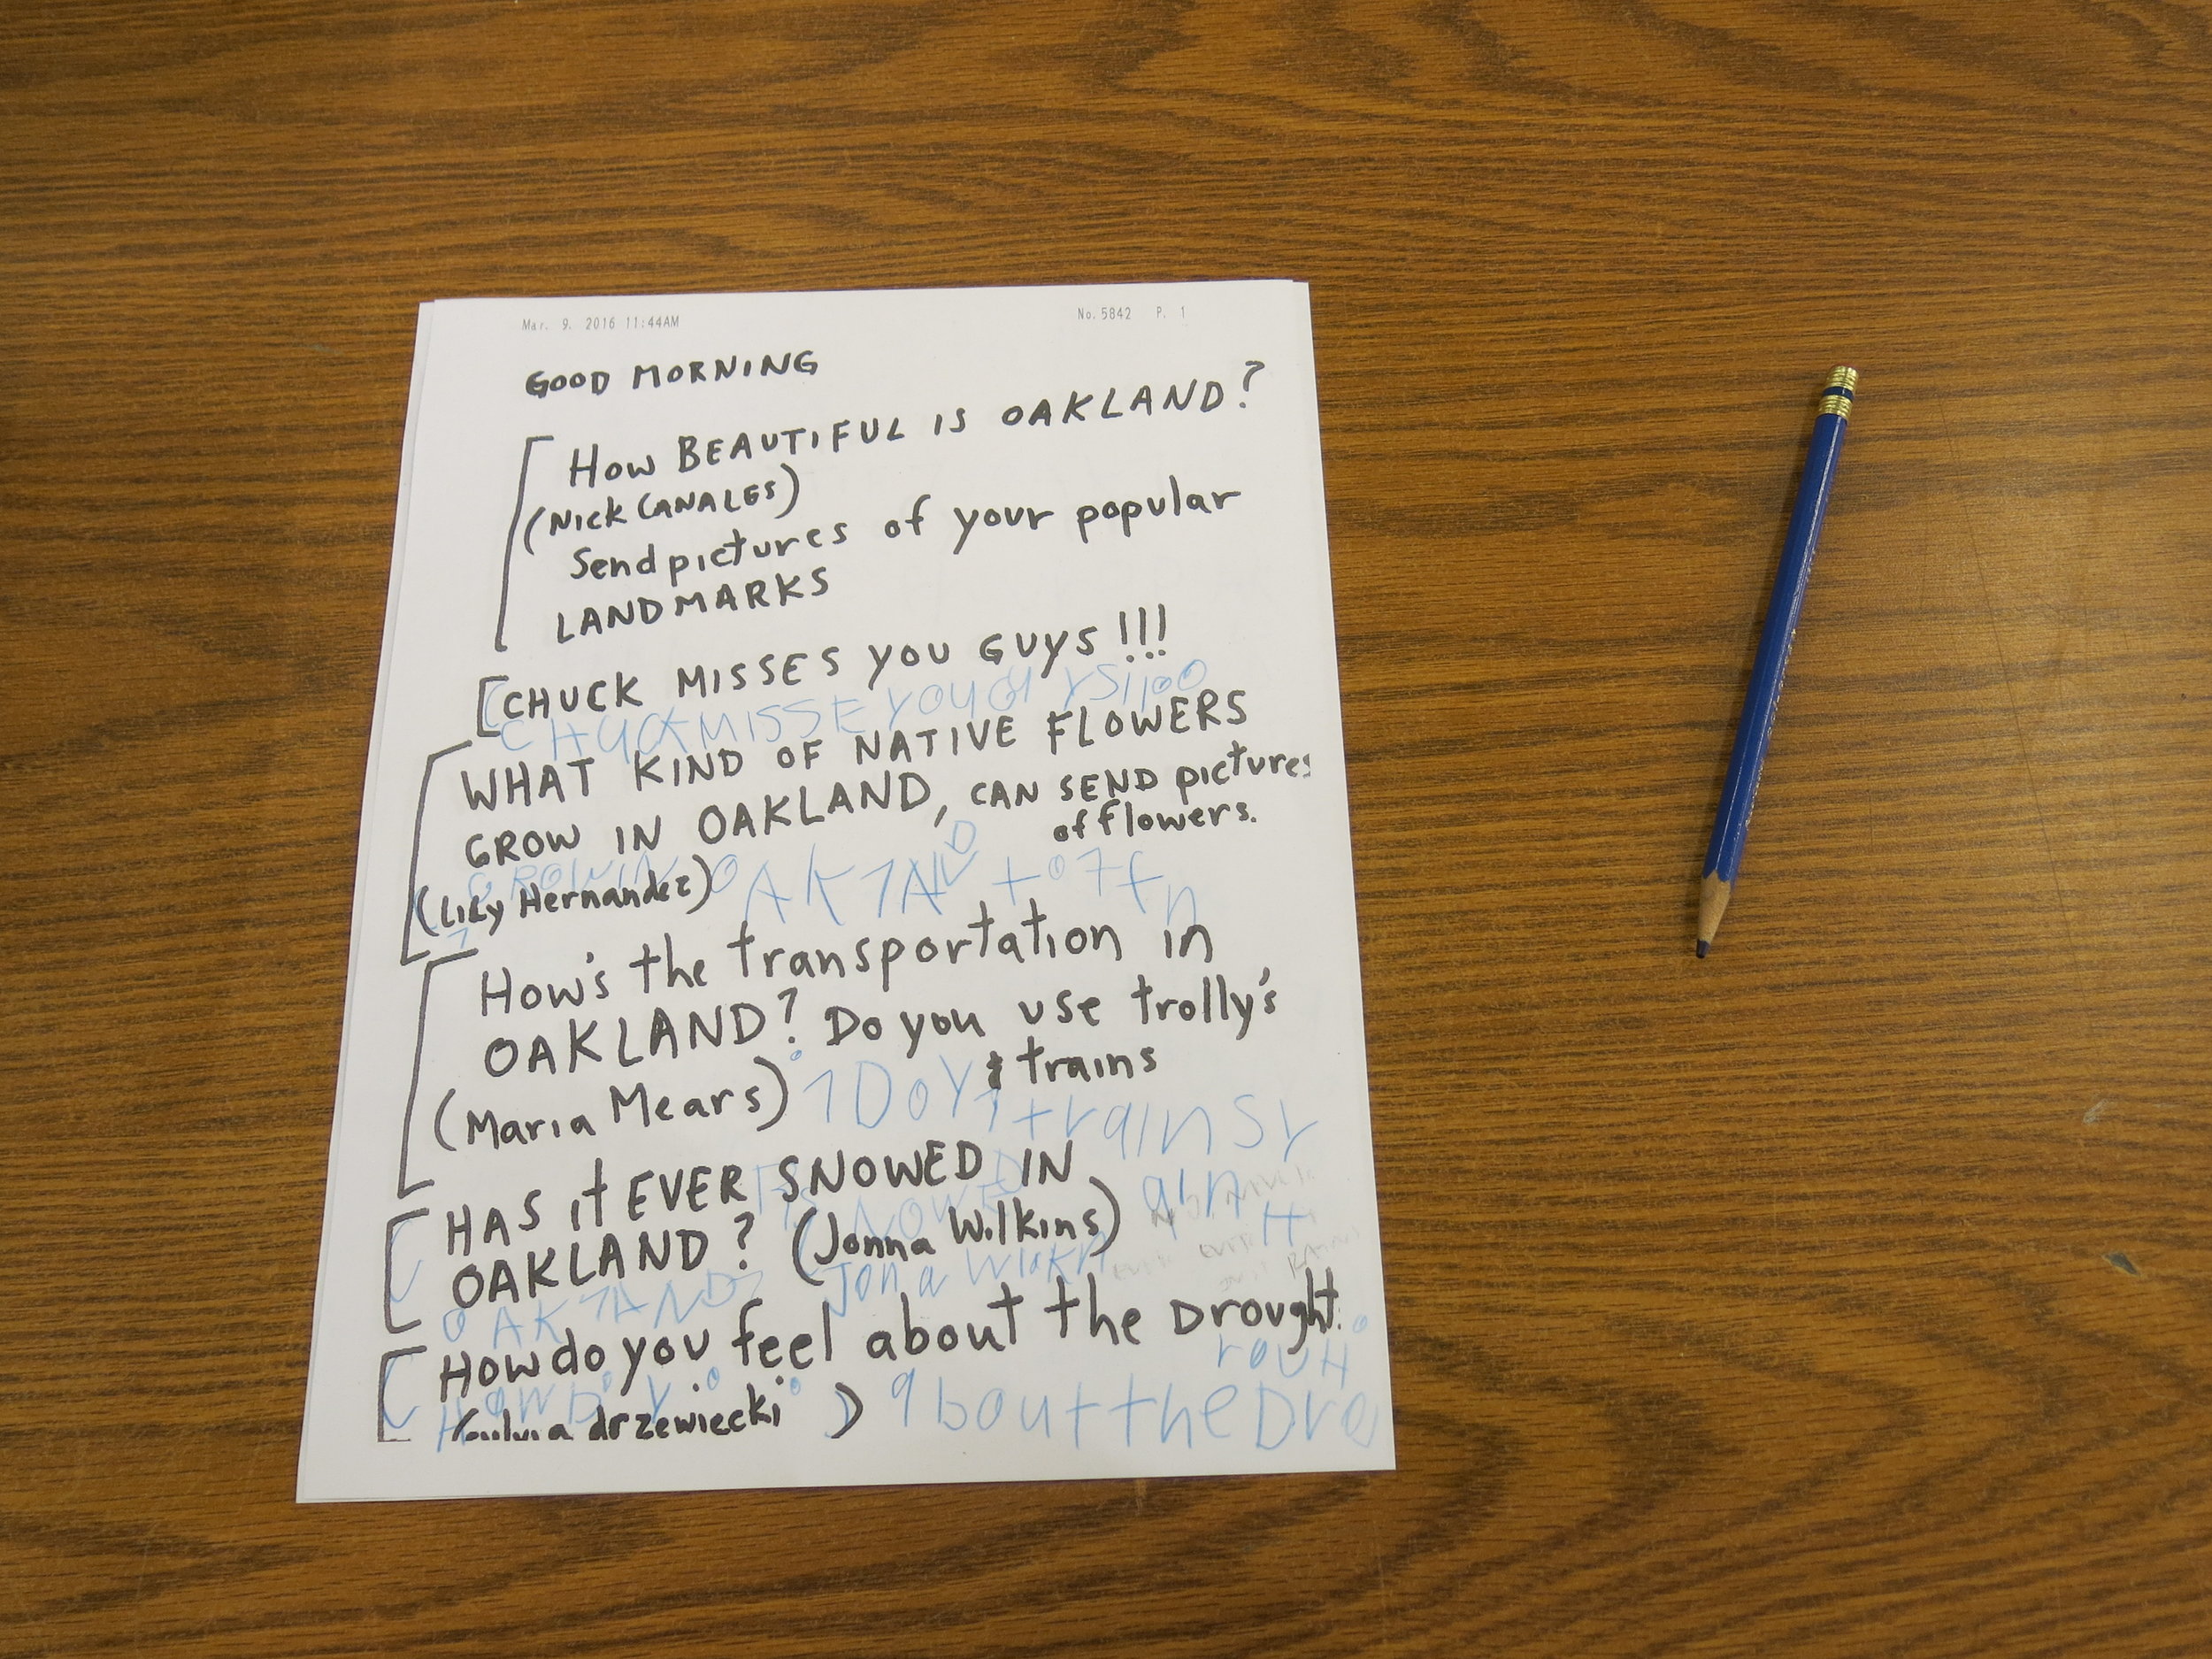 Mar. 9. 2016 11:44AM No.5842 P. 1
GOOD MORNING
How BEAUTIFUL IS OAKLAND?
(Nick CANALES)
Send pictures of your popular
LANDMARKS
CHUCK MISSES YOU GUYS!!!
CHUCK MISSE YOU
WHAT KIND OF NATIVE FLOWERS
GROW IN OAKLAND, CAN SEND pictures
of flowers.
GROWIN OAKLAND
(Lily Hernandez)
How's the transportation in
OAKLAND? Do you use trolly's
& trains
(Maria Mears) Do Y trains
HAS it EVER SNOWED IN
SNOWED
OAKLAND? (Jonna Wilkins)
OAKLAND Jona
How do you feel about the Drought.
HOW D Y
drzewiecki) about the Dro